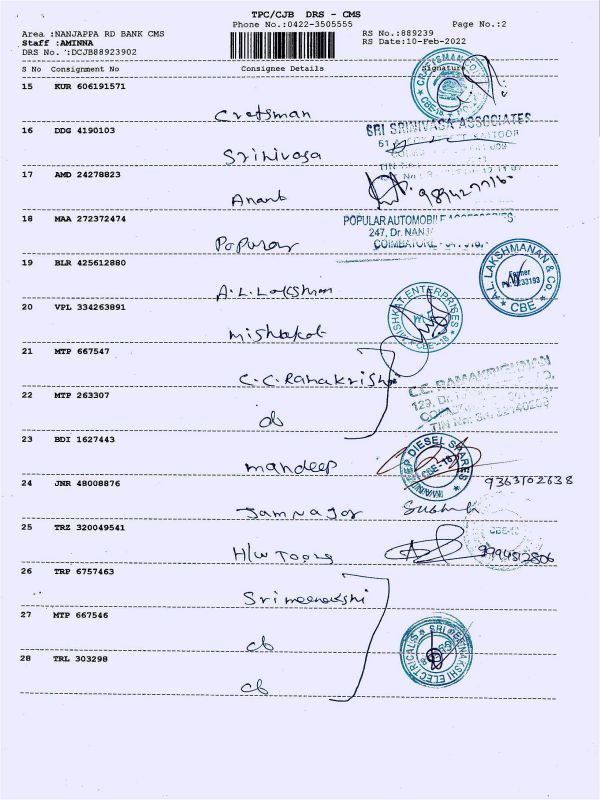 TPC/CJB DRS - CMS
Phone No.:0422-3505555
Page No.:2
Area :NANJAPPA RD BANK CMS
RS No.:889239
Staff :AMINNA
RS Date:10-Feb-2022
DRS No. :DCJB88923902
S No Consignment No Consignee Details Signature
15 KUR 606191571
CRAFTSMAN
CBE-18
Cretsman
16 DDG 4190103
SRI SRINIVASA ASSOCIATES
Srinivasa
17 AMD 24278823
Anant
18 MAA 272372474
POPULAR AUTOMOBILE ACCESSORIES
247, Dr. NANJ
COIMBATORE
Popular
19 BLR 425612880
A.L. LAKSHMANAN & Co.
CBE
A.L.Lakshman
20 VPL 334263891
MISHKAT ENTERPRISES
CBE-18
Mishakat
21 MTP 667547
C.C.Ramakrishn
C.C. RAMAKRISHNAN
22 MTP 263307
do
23 BDI 1627443
MANDEEP DIESEL SPARES
CBE-18
mandeep
24 JNR 48008876
9363102638
Jamnagar
25 TRZ 320049541
H/W Tools
9994512806
26 TRP 6757463
Srimeenakshi
27 MTP 667546
do
SRI MEENAKSHI ELECTRICALS
28 TRL 303298
do